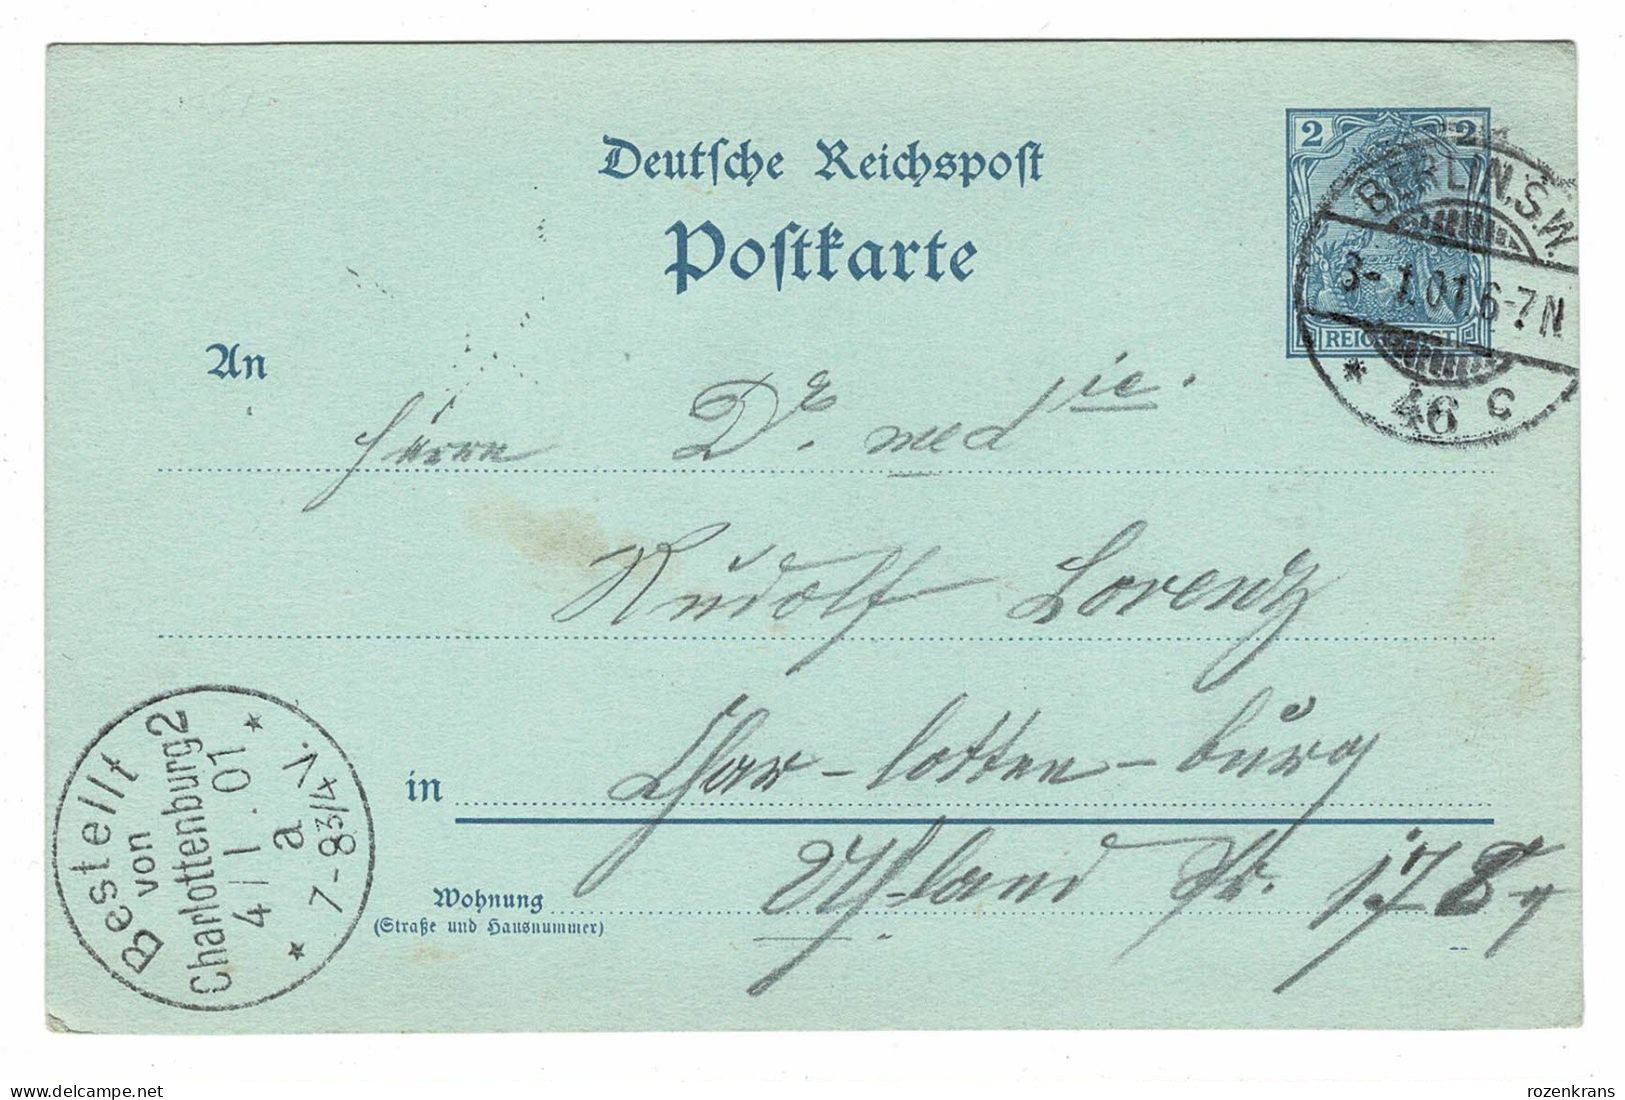 Deutsche Reichspost
Postkarte
2 2
REICHSPOST
BERLIN.S.W.
3-1.01.6-7N
* 46 c
An
Herrn Dr. med
Rudolf Lorentz
in Char-lotten-burg
Wohnung
(Straße und Hausnummer)
Uhland Str. 178
Bestellt
von
Charlottenburg 2
4/1.01
a
7-8 3/4 V.
rozenkrans